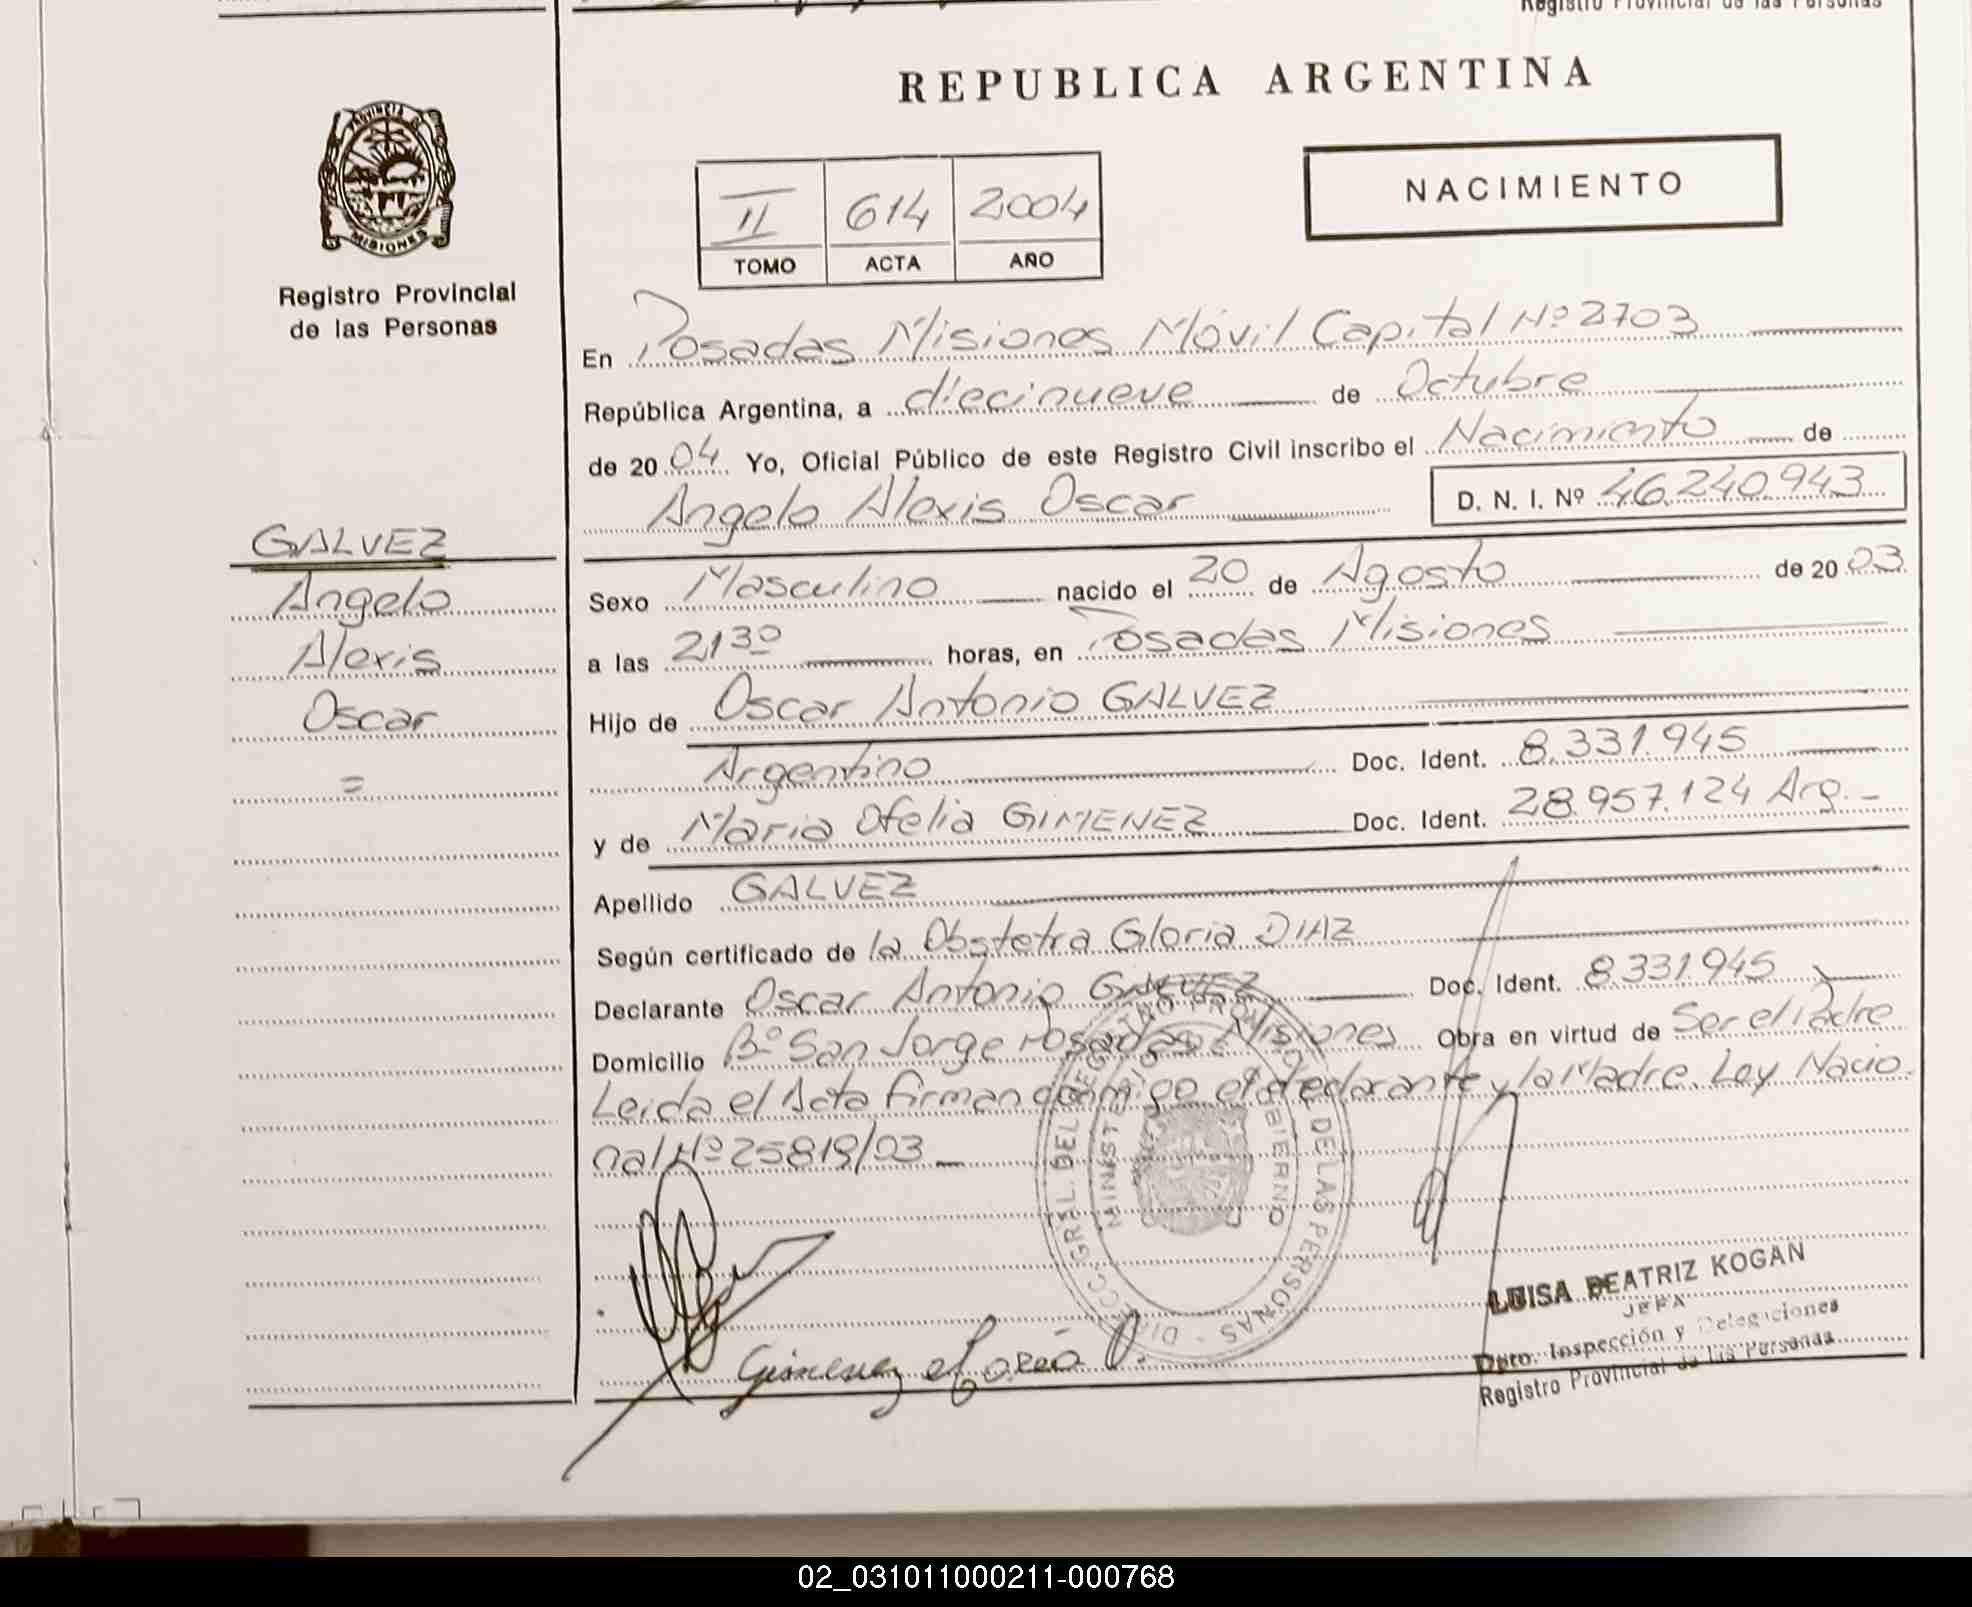 Registro Provincial de las Personas
REPUBLICA ARGENTINA
PROVINCIA DE
MISIONES
Registro Provincial
de las Personas
II 614 2004
TOMO ACTA AÑO
NACIMIENTO
En Posadas Misiones Móvil Capital Nº 2703
República Argentina, a diecinueve de Octubre
de 20 04 Yo, Oficial Público de este Registro Civil inscribo el Nacimiento de
Angelo Alexis Oscar D. N. I. Nº 46.240.943
GALVEZ
Angelo
Alexis
Oscar
=
Sexo Masculino nacido el 20 de Agosto de 20 03
a las 21 30 horas, en Posadas Misiones
Hijo de Oscar Antonio GALVEZ
Argentino Doc. Ident. 8.331.945
y de Maria Ofelia GIMENEZ Doc. Ident. 28.957.124 Arg.-
Apellido GALVEZ
Según certificado de la Obstetra Gloria DIAZ
Declarante Oscar Antonio GALVEZ Doc. Ident. 8.331.945
Domicilio Bº San Jorge Posadas Misiones Obra en virtud de Ser el Padre
Leida el Acta firman conmigo el declarante y la Madre. Ley Nacio
nal Nº 25819/03
DIRECC. GRAL. DEL REGISTRO PROV. DE LAS PERSONAS
MINISTERIO DE GOBIERNO
Gimenez Maria O.
LUISA BEATRIZ KOGAN
JEFA
Dpto. Inspección y Delegaciones
Registro Provincial de las Personas
02_031011000211-000768